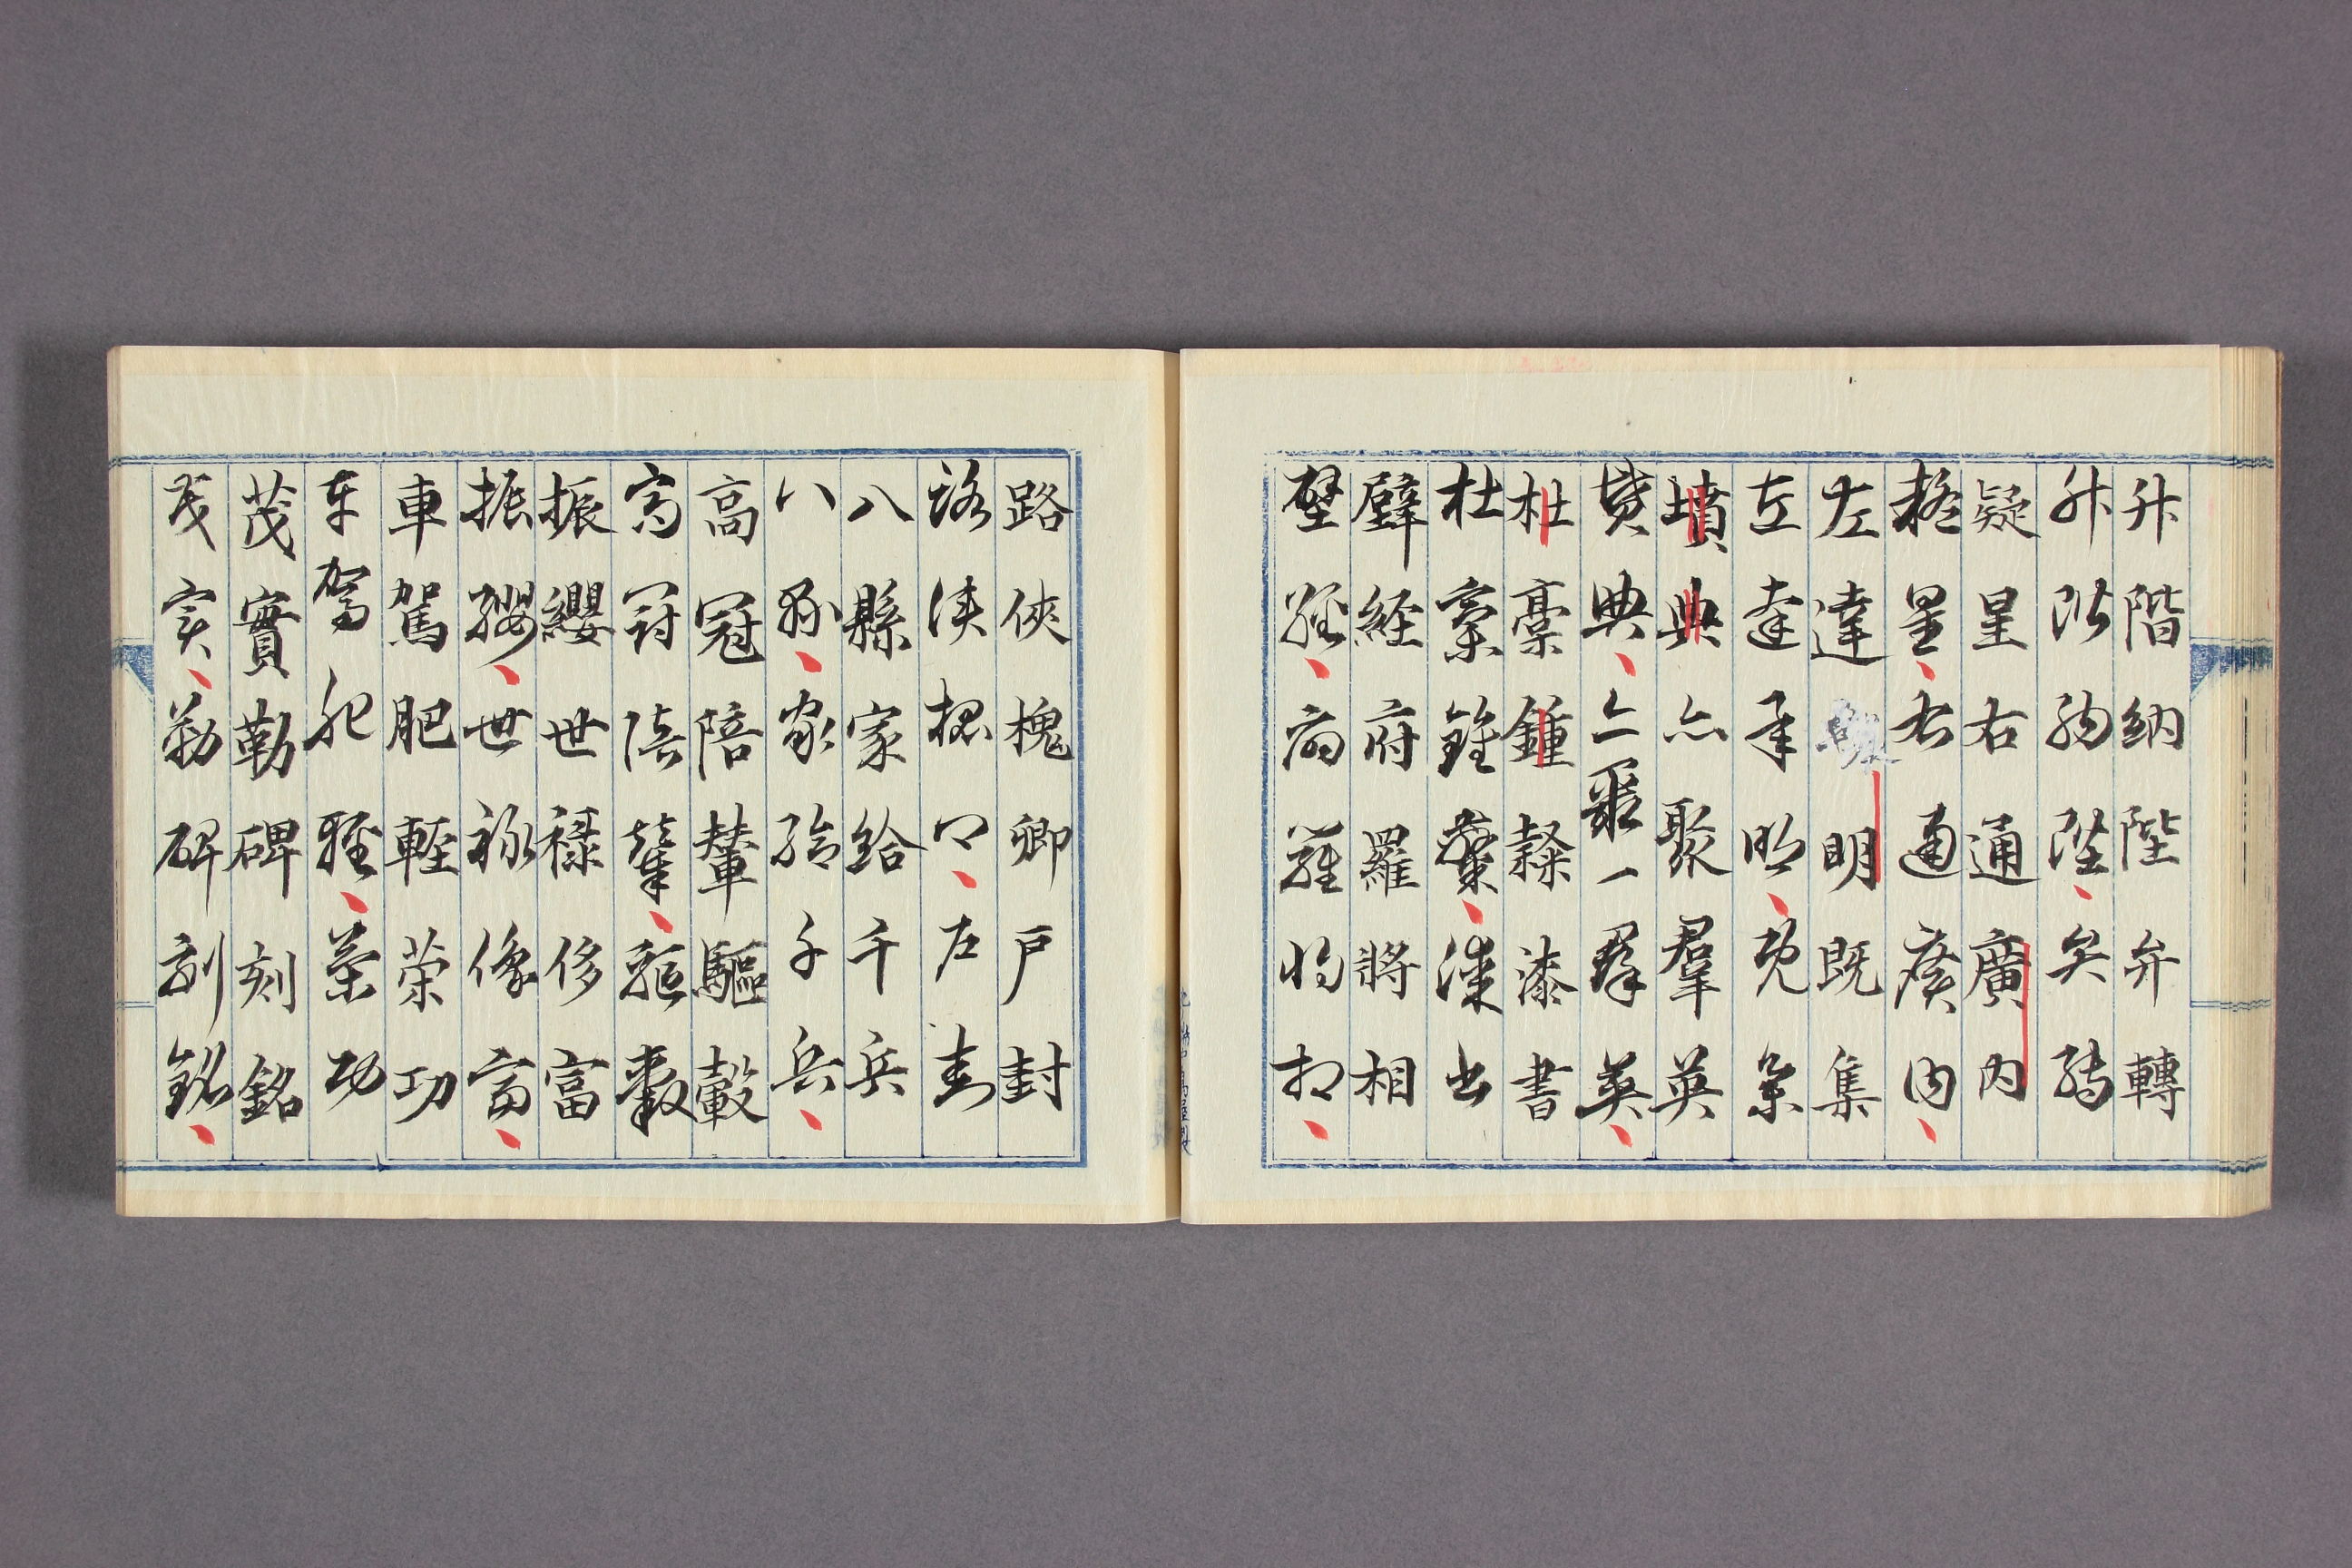 升階納陛弁轉
升階納陛弁轉
疑星右通廣內
疑星右通廣內
左達明既集
左達承明既集
墳典亦聚羣英
墳典亦聚群英
杜稾鍾隸漆書
杜稾鍾隸漆書
壁經府羅將相
壁經府羅將相
路俠槐卿戶封
路俠槐卿戶封
八縣家給千兵
八縣家給千兵
高冠陪輦驅轂
高冠陪輦驅轂
振纓世祿侈富
振纓世祿侈富
車駕肥輕榮功
車駕肥輕榮功
茂實勒碑刻銘
茂實勒碑刻銘